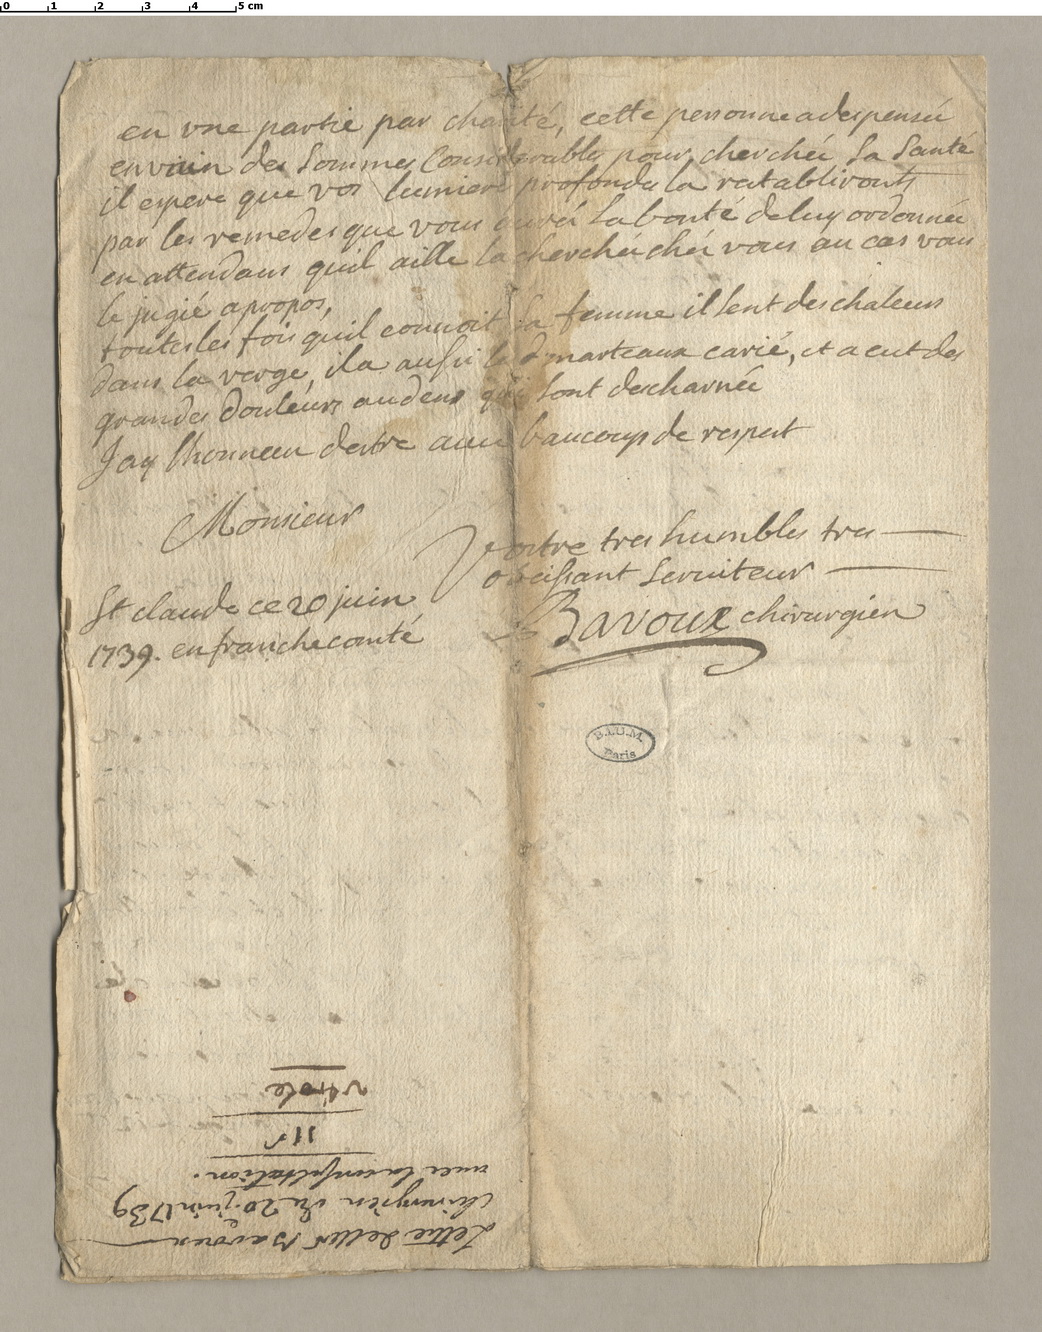 0 1 2 3 4 5 cm
en une partie par charité, cette personne a despensé
en vain des sommes Considerables pour cherchéé sa santé
il espere que vos lumiere profonde la ratablironts
par les remedes que vous auréé la bonté de luy ordonnéé
en attendans quil aille la chercher chéé vous au cas vous
le jugié apropos,
touttes les fois quil connoit sa femme il sent des chaleurs
dans la verge, il a aussi les marteaux carié, et a eut des
grandes douleurs au dens qui sont descharnéé
Jay lhonneur destre avec baucoups de respect
Monsieur
Vostre tres humbles tres
obeissant serviteur
Bavoux chirurgien
St claude ce 20 juin
1739. en franche comté
B.I.U.M.
Paris
Lettre de Mr Bavoux
chirurgien du 20. juin 1739
avec la consultation.
verole